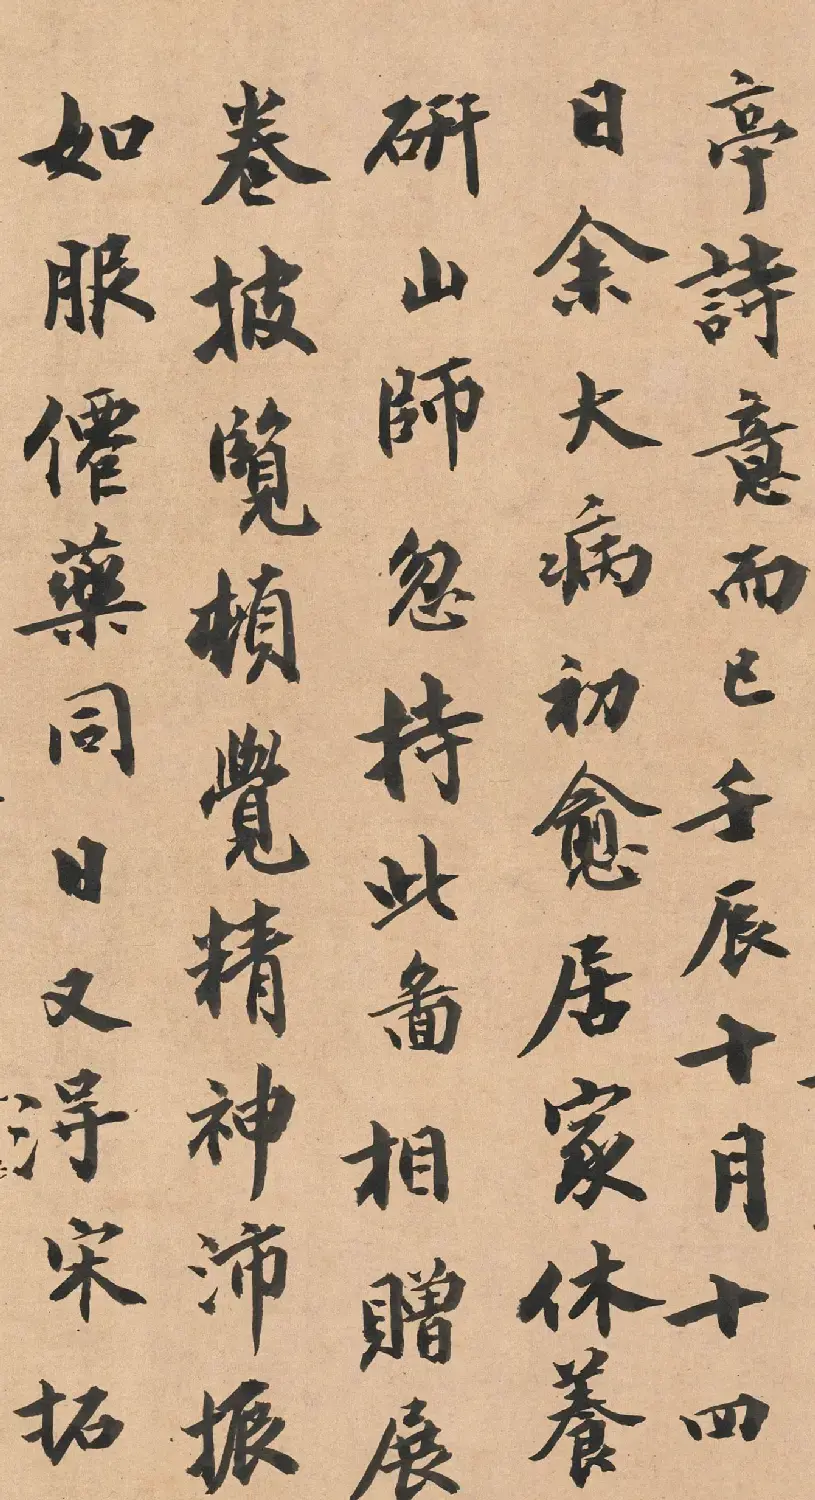 亭詩意而已壬辰十月十四
日余大病初愈居家休養
研山師忽持此啚相贈展
卷披覽頓覺精神沛振
如服僊藥同日又淂宋拓